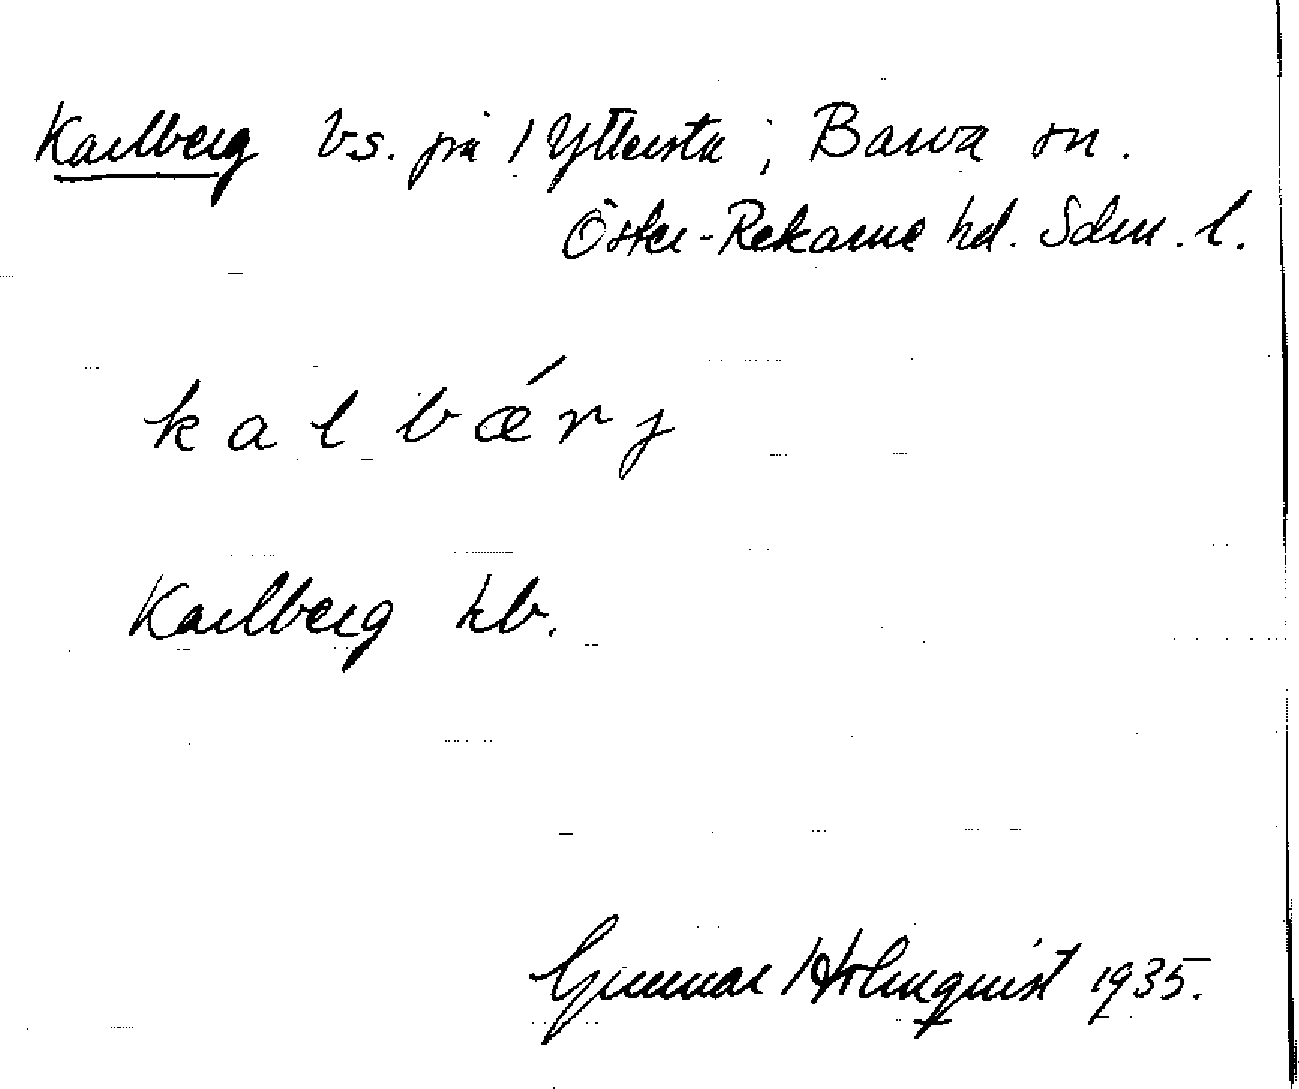 Karlberg bs. på 1 Yttersta; Barva sn.
Öster-Rekarne hd. Sdm. l.
kalbǽrj
Karlberg hb.
Gunnar Holmquist 1935.